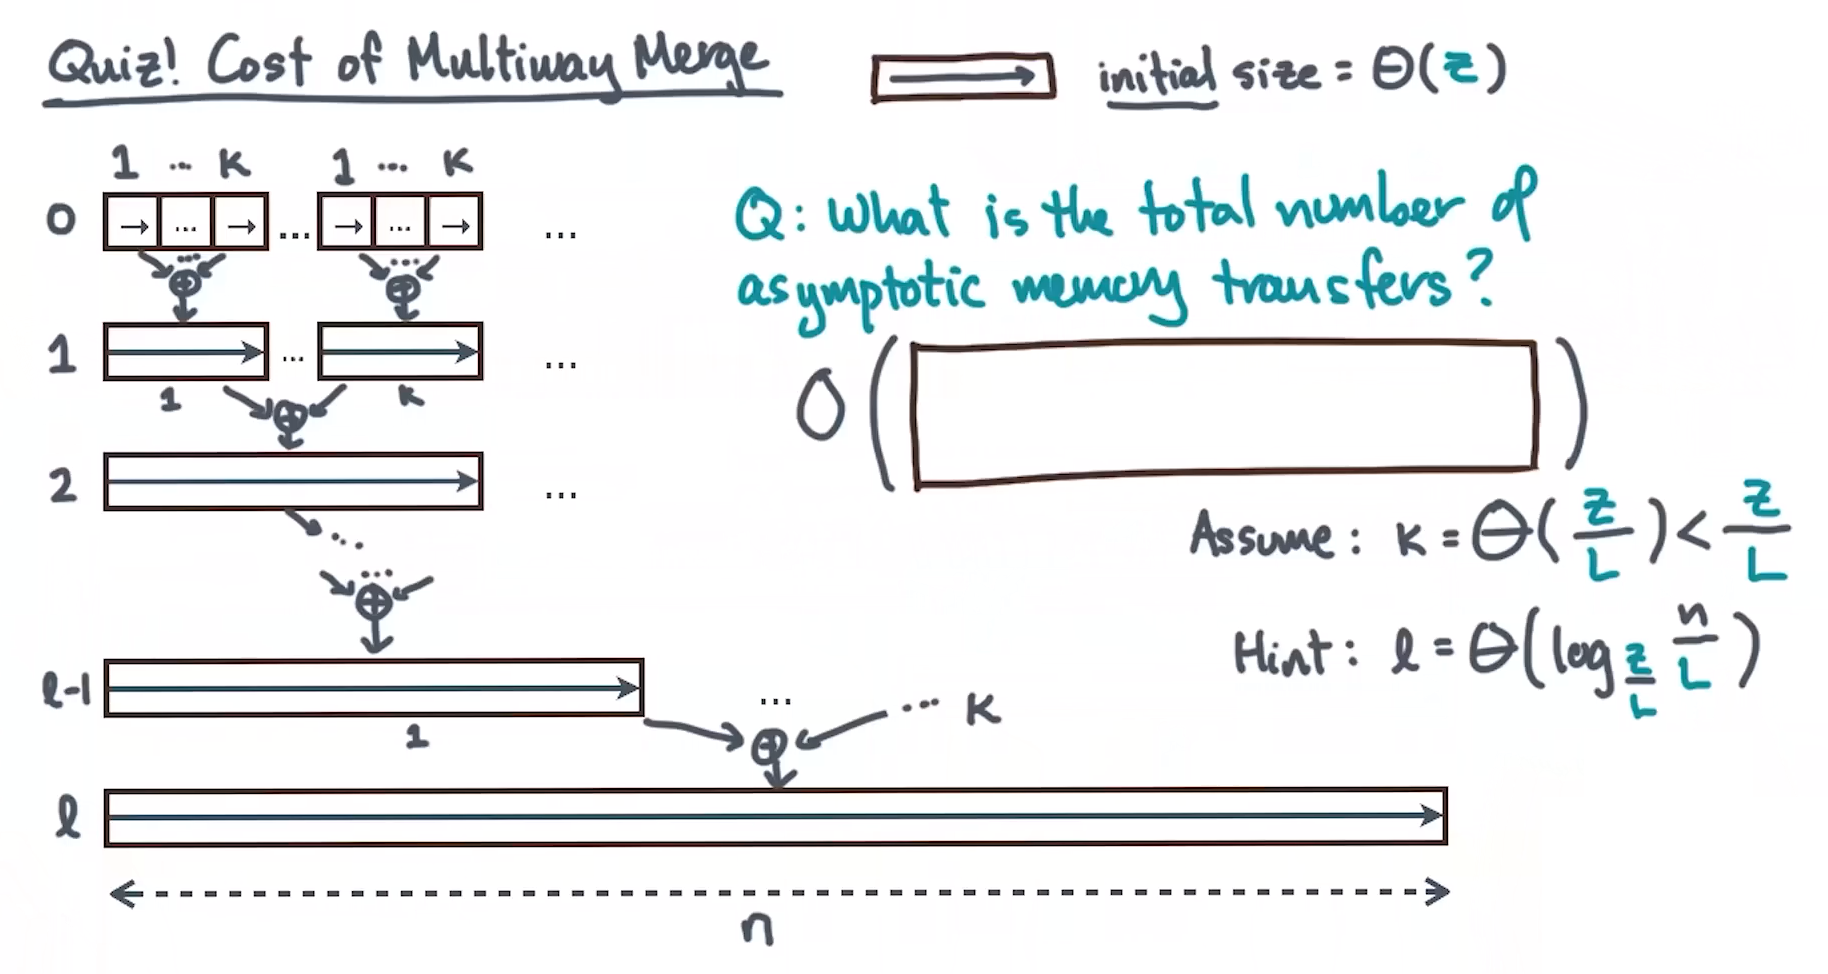 Quiz! Cost of Multiway Merge
initial size = Θ(Z)
1 ... K 1 ... K
0 → ... → ... → ... → ...
Q: What is the total number of
asymptotic memory transfers?
1 ... ...
1 K
O( )
2 ...
...
Assume: K = Θ(Z/L) < Z/L
...
Hint: l = Θ(log_{Z/L} n/L)
l-1 ... ... K
1
l
n